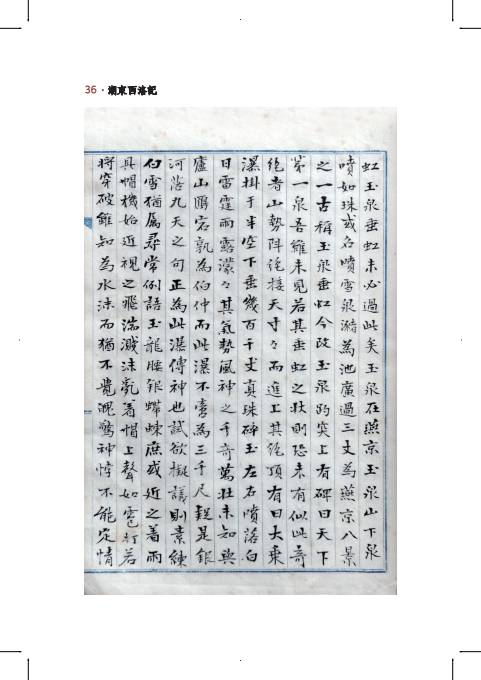 36 · 湖東西洛記
虹玉泉垂虹未必過此矣玉泉在燕京玉泉山下泉
噴如珠或名噴雪泉瀦為池廣過三丈為燕京八景
之一古稱玉泉垂虹今改玉泉趵突上有碑曰天下
第一泉吾雖未見若其垂虹之狀則恐未有似此奇
絶者山勢陡絶接天寸々而進上其絶頂有曰大乘
瀑掛于半空下垂幾百千丈真珠碎玉左右噴落白
日雷霆雨露濛々其氣勢風神之千奇萬壯未知與
廬山鴈宕孰為伯仲而此瀑不啻為三千尺疑是銀
河落九天之句正為此瀑傳神也試欲擬議則素練
白雪猶属尋常例語玉龍腰銀螮蝀庶或近之着雨
具帽機始近視之飛湍濺沫亂着帽上聲如雹打若
將穿破雖知為水沫而猶不覺魄驚神悸不能定情